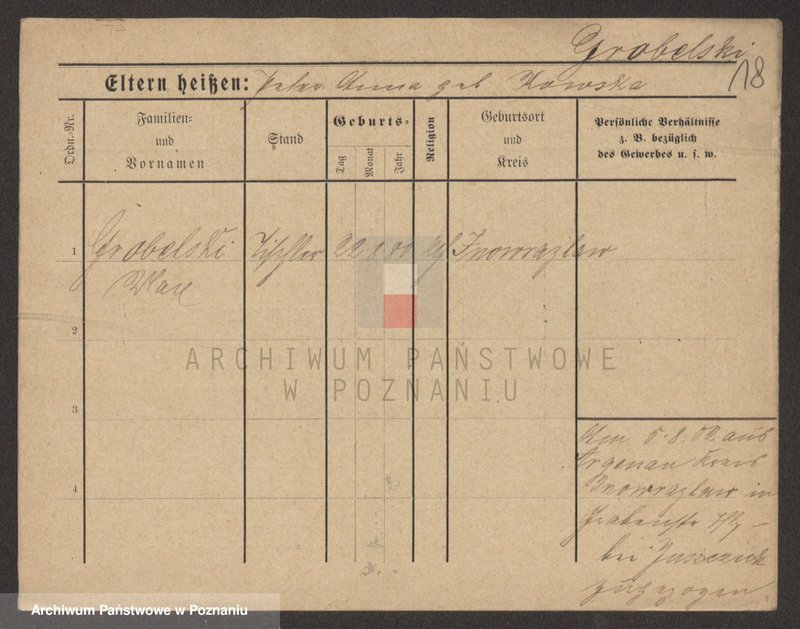 Grobelski
18
Eltern heißen: Peter Anna geb
Ordn.-Nr.
Familien-
und
Vornamen
Stand
Geburts-
Tag
Monat
Jahr
Religion
Geburtsort
und
Kreis
Persönliche Verhältnisse
z. B. bezüglich
des Gewerbes u. s. w.
1
Grobelski Tischler 22 Inowrazlaw
2
ARCHIWUM PAŃSTWOWE
W POZNANIU
3
Am 5.8.02 aus
Argenau Kreis
Inowrazlaw in
4
Grabenstr
bei
zugezogen
Archiwum Państwowe w Poznaniu